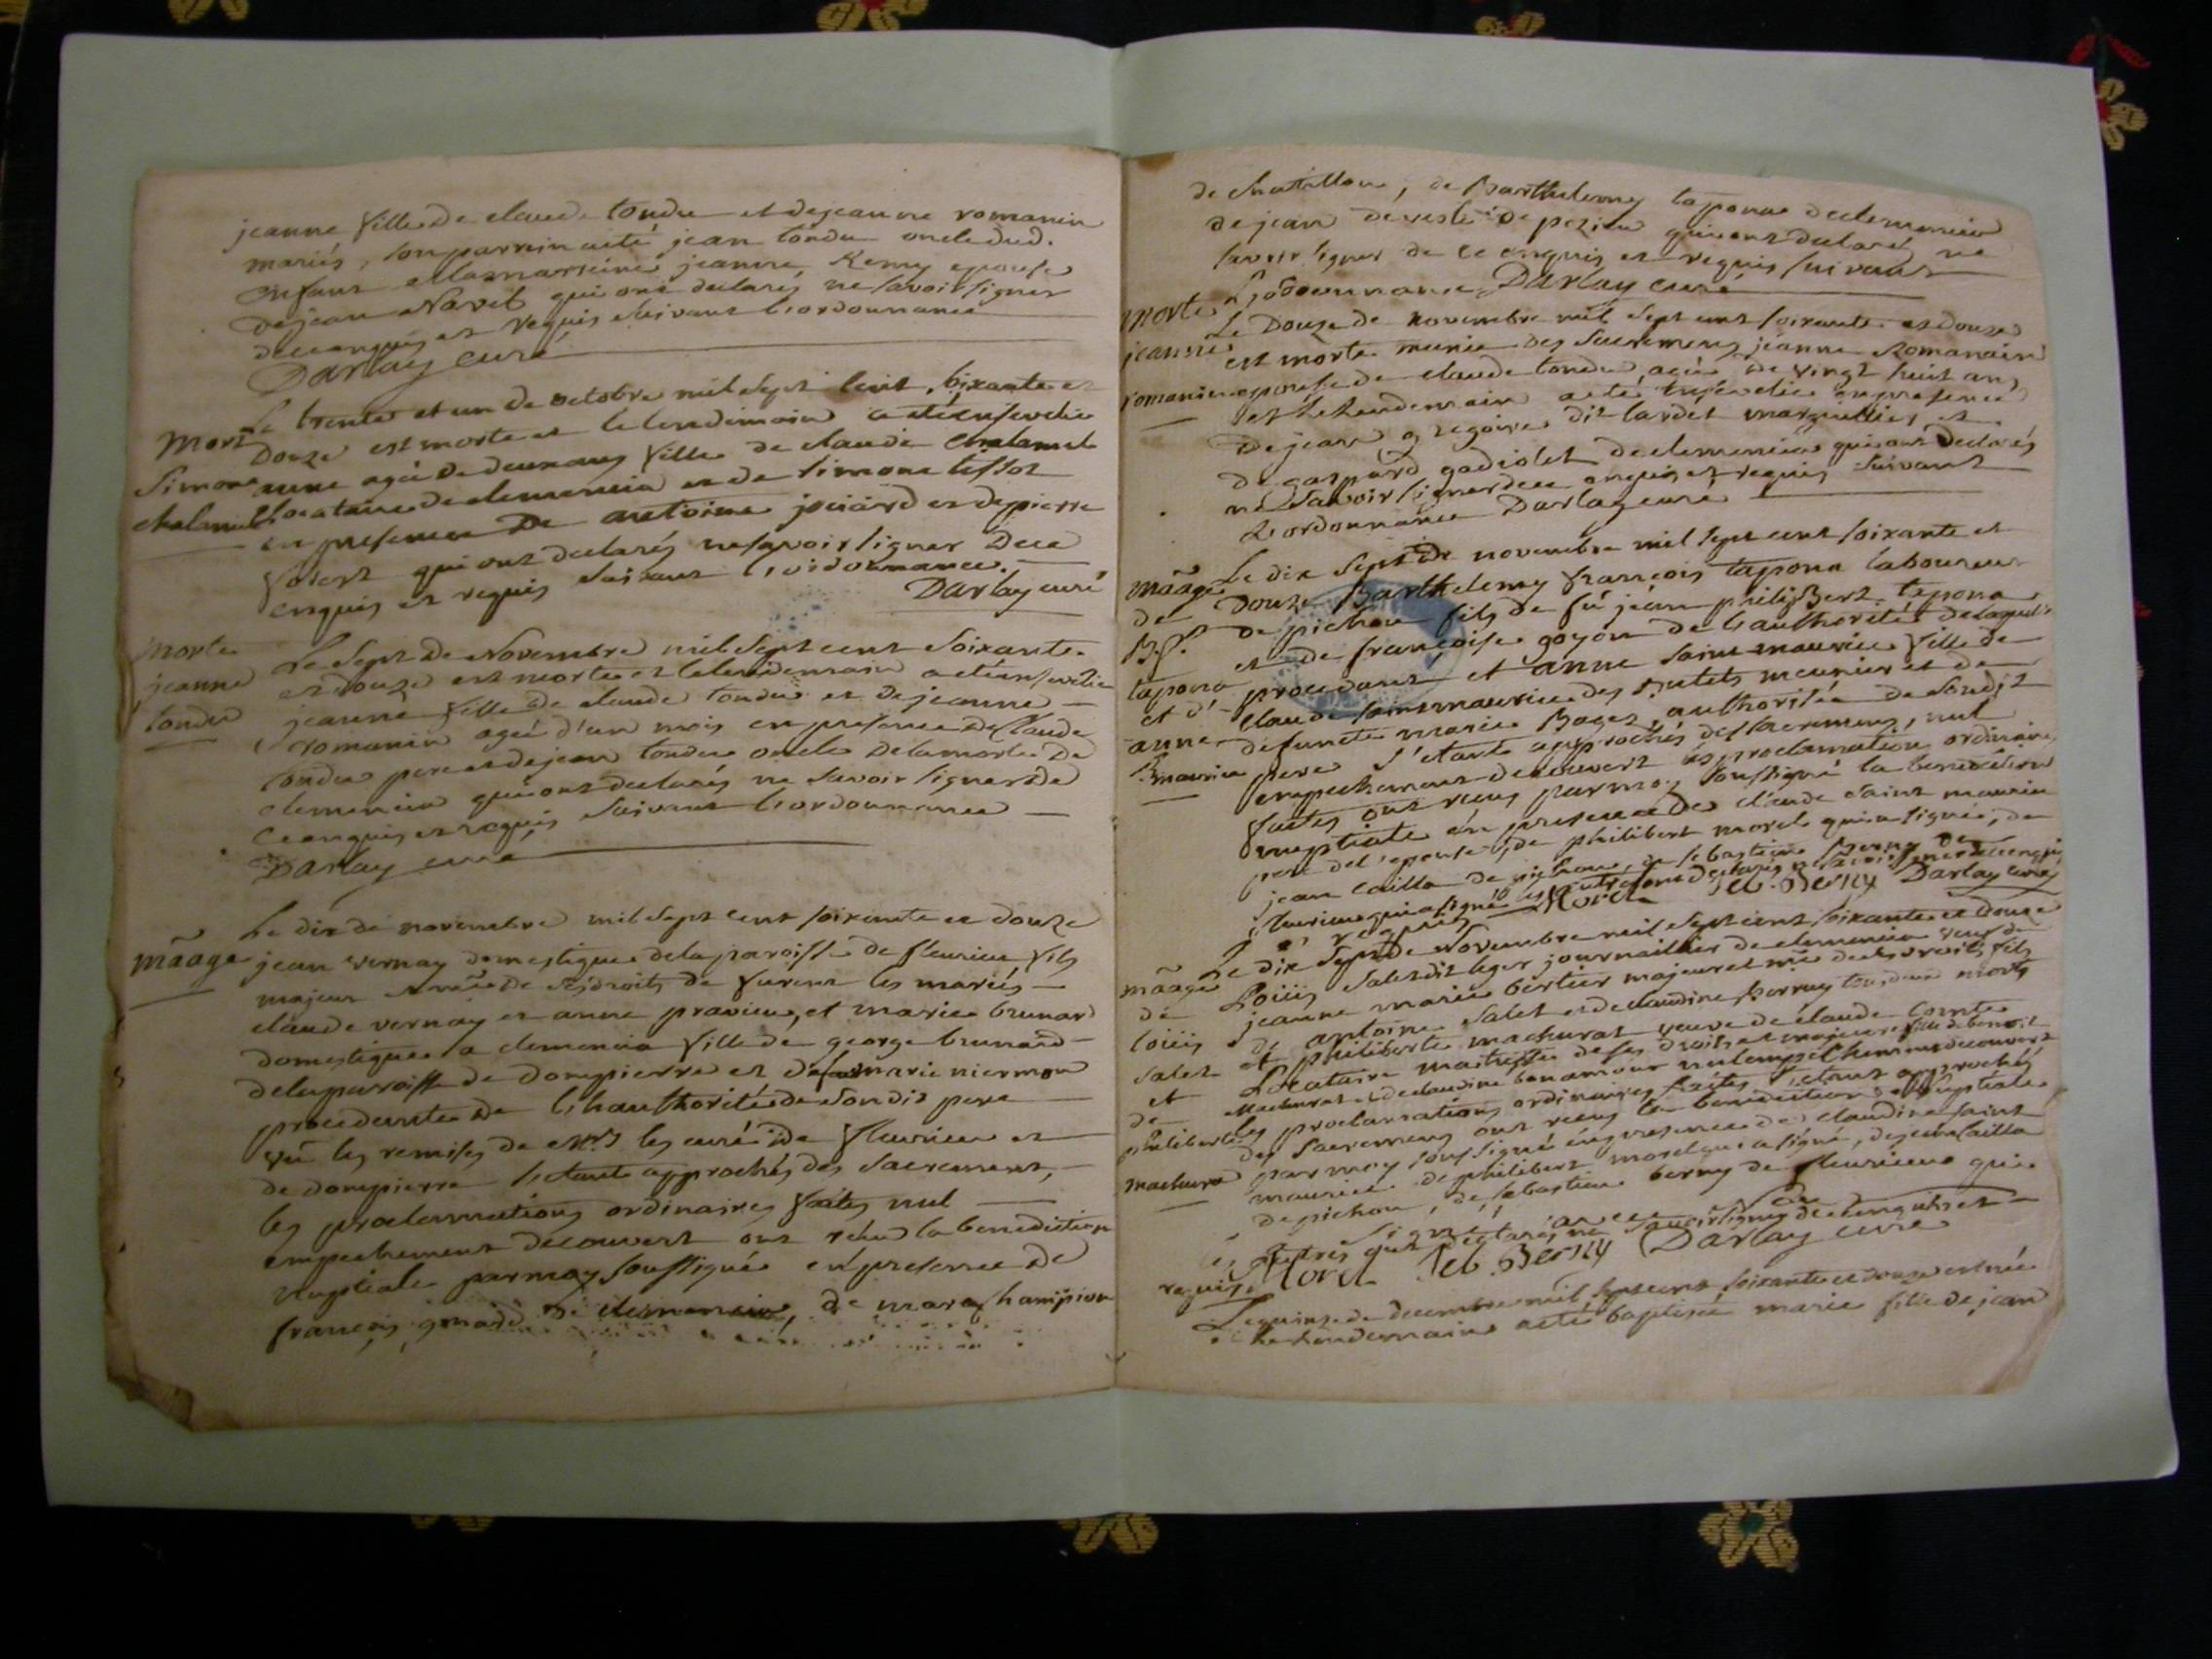 jeanne fille de claude tondu et de jeanne romanin
mariés, son parrin a été jean tondu oncle dud.
enfant et la marreine jeanne Remy epouse
de jean Navel qui ont declarés ne savoir signer
de ce enquis et requis suivant l'ordonnance
Darlay curé
Le trente et un de octobre mil sept cent soixante et
Morte
douze est morte et le lendemain a eté ensevelie
Simone
agée de deux ans fille de claude chalamel
chalamel
locataire de clemencia et de simone tissot
en presence de antoine joüard et de pierre
qui ont declarés ne savoir signer de ce
enquis et requis suivant l'ordonnance.
Darlay curé
Morte
jeanne
tondu
Le sept de Novembre mil sept cent soixante
et douze est morte et le lendemain a eté ensevelie
jeanne fille de claude tondu et de jeanne
romanin agée d'un mois en presence de claude
tondu pere et de jean tondu oncle de la morte de
clemencia qui ont declarés ne savoir signer de
ce enquis et requis suivant l'ordonnance
Darlay curé
Le dix de novembre mil sept cent soixante et douze
mãage
jean vernay domestique de la paroisse de fleurieu fils
majeur et de ses droits de furent les mariés
claude vernay et anne pravieu, et marie brunard
domestique a clemencia fille de george brunard
de la paroisse de dompierre et de marie niermon
procedante de l'hauthorité de son dit pere
vû les remises de Mrs les curé de fleurieu et
de dompierre s'etant approchés des sacrements,
les proclamations ordinaires faites nul
empechement decouvert ont reçu la benediction
nuptiale par moy soussigné en presence de
françois de clemencia, de marc champion
de chatillon, de Barthelemy tapona de clemencia
de jean de pezieu qui ont declaré ne
savoir signer de ce enquis et requis suivant
L'ordonnance Darlay curé
Morte
jeanne
romanin
Le Douze de novembre mil sept cent soixante et douze
est morte munie des sacremens jeanne Romanain
epouse de claude tondu, agée de vingt huit ans
et le lendemain a eté ensevelie en presence
de jean gregoire dit lardet marguillier et
de gaspard gadiolet de clemencia qui ont declarés
ne savoir signer de ce enquis et requis suivant
L'ordonnance Darlay curé
mãage
de
tapona
et d'
anne
St maurice
Le dix sept de novembre mil sept cent soixante et
Douze Barthelemy françois tapona laboureur
de pichou fils de fû jean philibert tapona
et de françoise goyon de l'authorité de laquelle
procedant et anne saint maurice fille de
claude saint maurice des meunier et de
defunte marie Bages, authorisée de son dit
pere s'etant approchés des sacremens, nul
empechement decouvert les proclamations ordinaires
faites ont reçus par moy soussigné la benediction
nuptiale en presence de claude saint maurice
pere de l'epouse, de philibert morel qui a signé, de
jean caillo de pichou, de sebastien berny de
fleurieu qui a signé les autres ont declarés ne savoir signer de ce enquis
et requis Morel Seb. Berny Darlay curé
mãage
de
loüis
salet
et
de
philiberte
machurat
Le dix sept de Novembre mil sept cent soixante et douze
Loüis Salet dit leger journaillier de clemencia veuf de
jeanne marie bertier majeur et de ses droits, fils
de antoine Salet et de claudine perruy tous deux morts
et philiberte machurat veuve de claude comte
Locataire maitresse de ses droits et majeure fille de benoit
Machurat et de claudine bonamour nul empechement decouvert
les proclamations ordinaires faites s'etant approchés
des sacremens ont reçus la benediction nuptiale
par moy soussigné en presence de claudine saint
maurice de philibert morel qui a signé, de jean caillo
de pichou, de sebastien berny de fleurieu qui a
signé avec
les autres ont declarés ne savoir signer de ce enquis et
requis. Morel Seb. Berny Darlay curé
Le quinze de decembre mil sept cent soixante et douze est née
et le lendemain a eté baptisée marie fille de jean